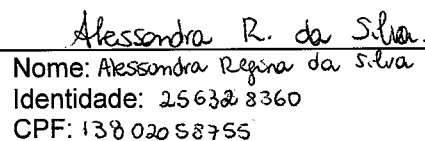 Alessandra R. da Silva.
Nome: Alessandra Regina da Silva
Identidade: 256328360
CPF: 13802058755